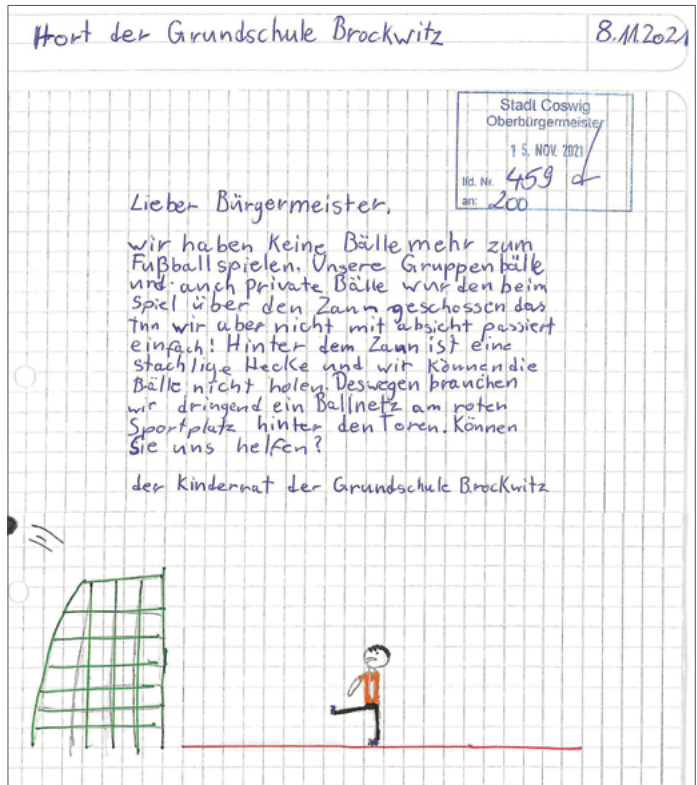 Hort der Grundschule Brockwitz
8.11.2021
Stadt Coswig
Oberbürgermeister
15. NOV. 2021
lfd. Nr. 459
an: 200
Lieber Bürgermeister,
wir haben Keine Bälle mehr zum
Fußballspielen. Unsere Gruppenbälle
und auch private Bälle wurden beim
Spiel über den Zaun geschossen das
tun wir aber nicht mit absicht passiert
einfach! Hinter dem Zaun ist eine
stachlige Hecke und wir können die
Bälle nicht holen. Deswegen brauchen
wir dringend ein Ballnetz am roten
Sportplatz hinter den Toren. Können
Sie uns helfen?
der Kinderrat der Grundschule Brockwitz